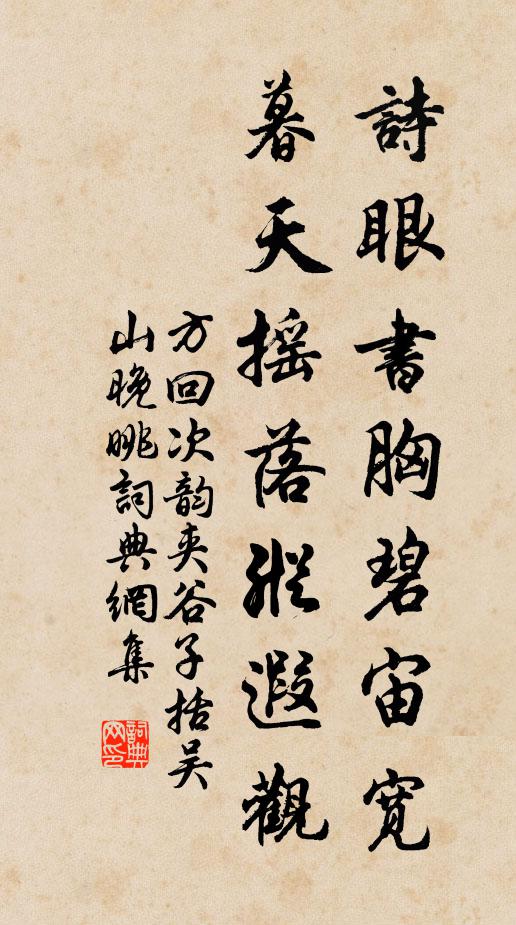 詩眼書胸碧宙寬
暮天摇落縱遐觀
方回次韵夹谷子括吴
山晚眺詞典網集
詞典網印